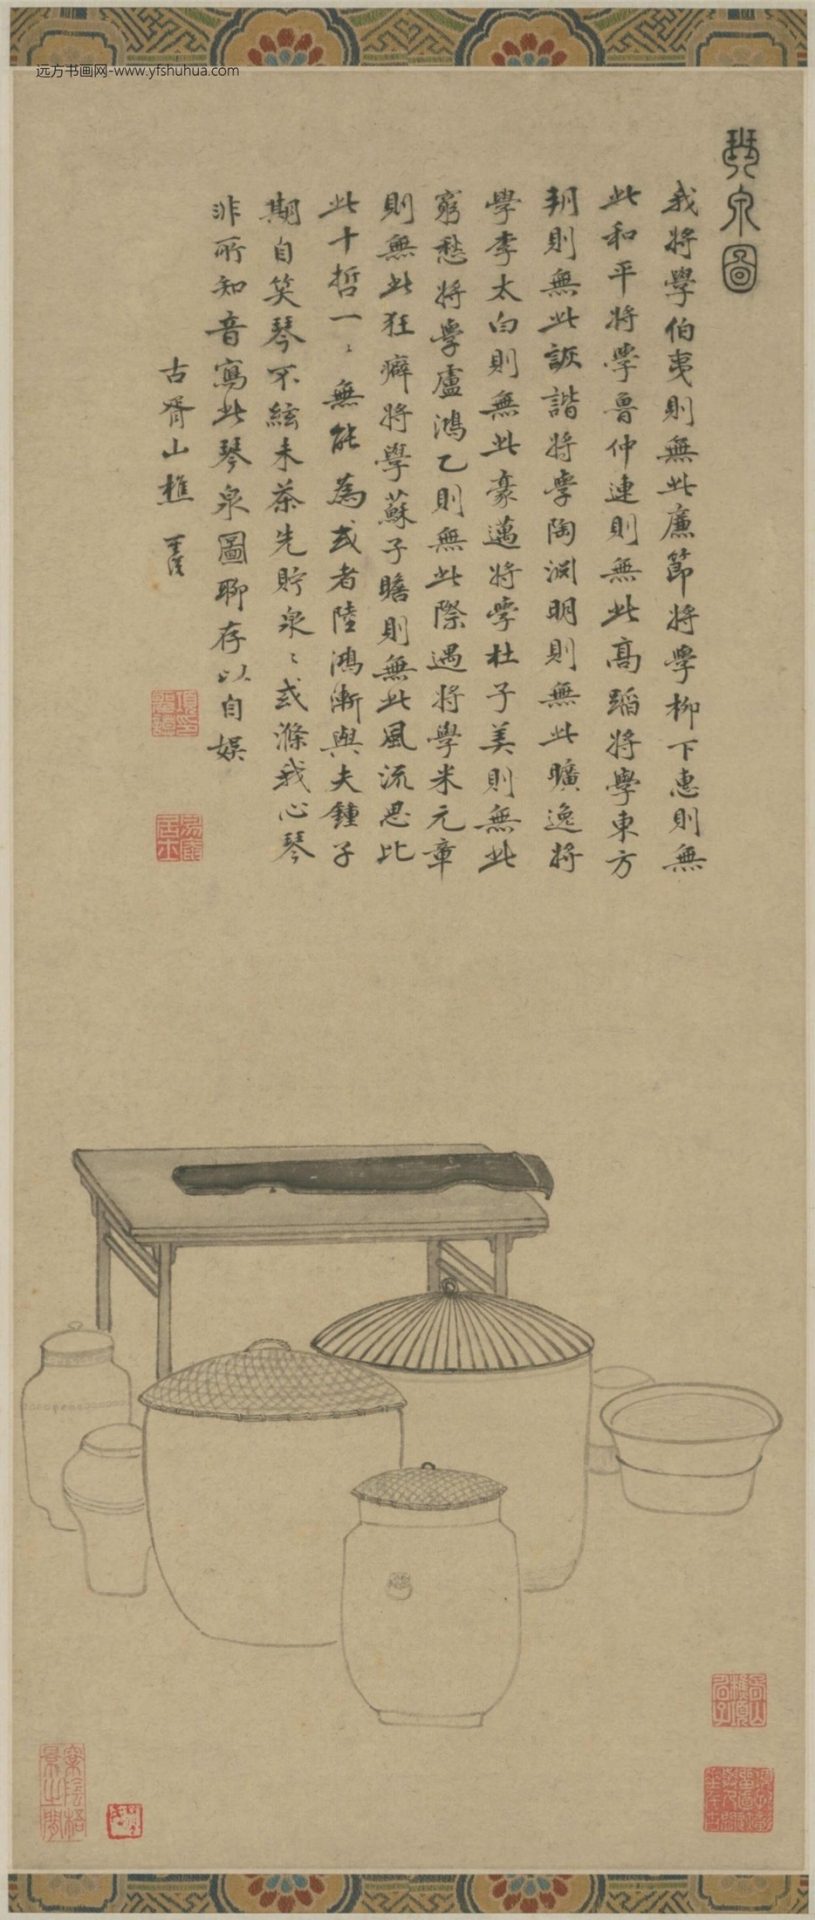 远方书画网-www.yfshuhua.com
琴泉圖
我將學伯夷則無此廉節將學柳下惠則無
此和平將學魯仲連則無此高蹈將學東方
朔則無此詼諧將學陶淵明則無此曠逸將
學李太白則無此豪邁將學杜子美則無此
窮愁將學盧鴻乙則無此際遇將學米元章
則無此狂癖將學蘇子瞻則無此風流思比
此十哲一〻無能為或者陸鴻漸與夫鍾子
期自笑琴不絃未茶先貯泉〻或滌我心琴
非所知音寫此琴泉圖聊存以自娛
古胥山樵